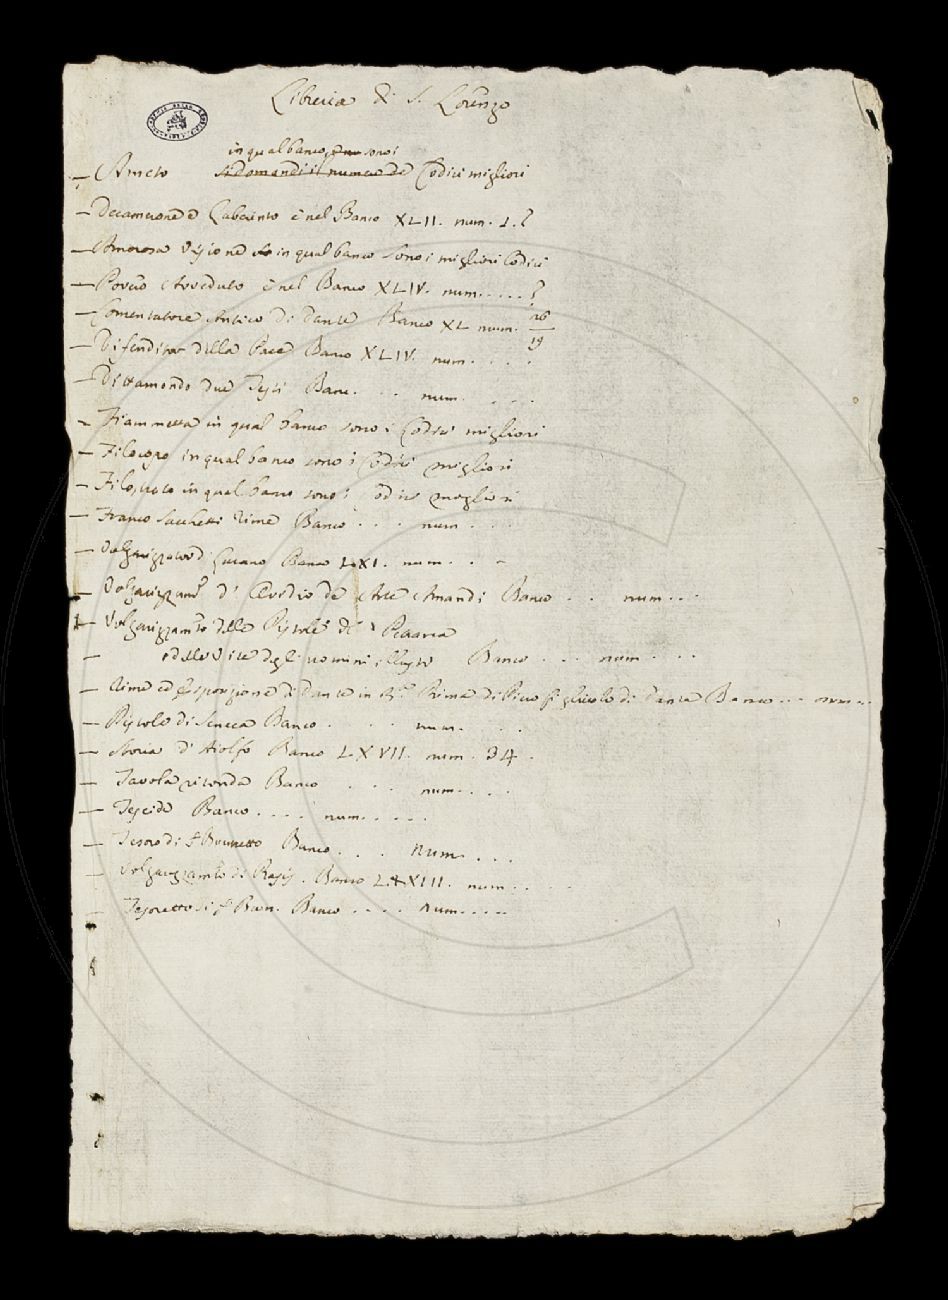 Libreria di S. Lorenzo
in qual banco sono i
Ameto si domandi il numero de Codici migliori
Decamerone e Laberinto è nel Banco XLII. num. 1.?
Amorosa Visione in qual banco sono i migliori Codici
Corvo Avveduto è nel Banco XLIV. num.....?
Comentatore Antico di Dante Banco XL num. 26
19
Difenditor della Pace Banco XLIV. num. . . .
Dittamondo due Testi Banc. . . num. . . .
Fiammetta in qual banco sono i Codici migliori
Filocopo in qual banco sono i Codici migliori
Filostrato in qual banco sono i Codici migliori
Franco Sacchetti Rime Banco . . . num. . .
Volgarizzator di Lucano Banco LXI. num. . .
Volgarizzam.to d'Ovidio de Arte Amandi Banco . . num. . .
Volgarizzam.to delle Pistole del Petrarca
e delle Vite degli uomini illustri Banco . . . num. . . .
Rime ed Esposizione di Dante in 3.a Rima di Piero figliuolo di Dante Banco . . . num. . .
Pistole di Seneca Banco . . . num. . . .
Storia d'Aiolfo Banco LXVII. num. 34.
Tavola ritonda Banco . . . num. . . .
Teseide Banco . . . . num. . . . .
Tesoro di S.r Brunetto Banco . . . num. . . .
Volgarizzam.to di Rasis. Banco LXXIII. num. . . . .
Tesoretto di S.r Brun. Banco . . . . num. . . .